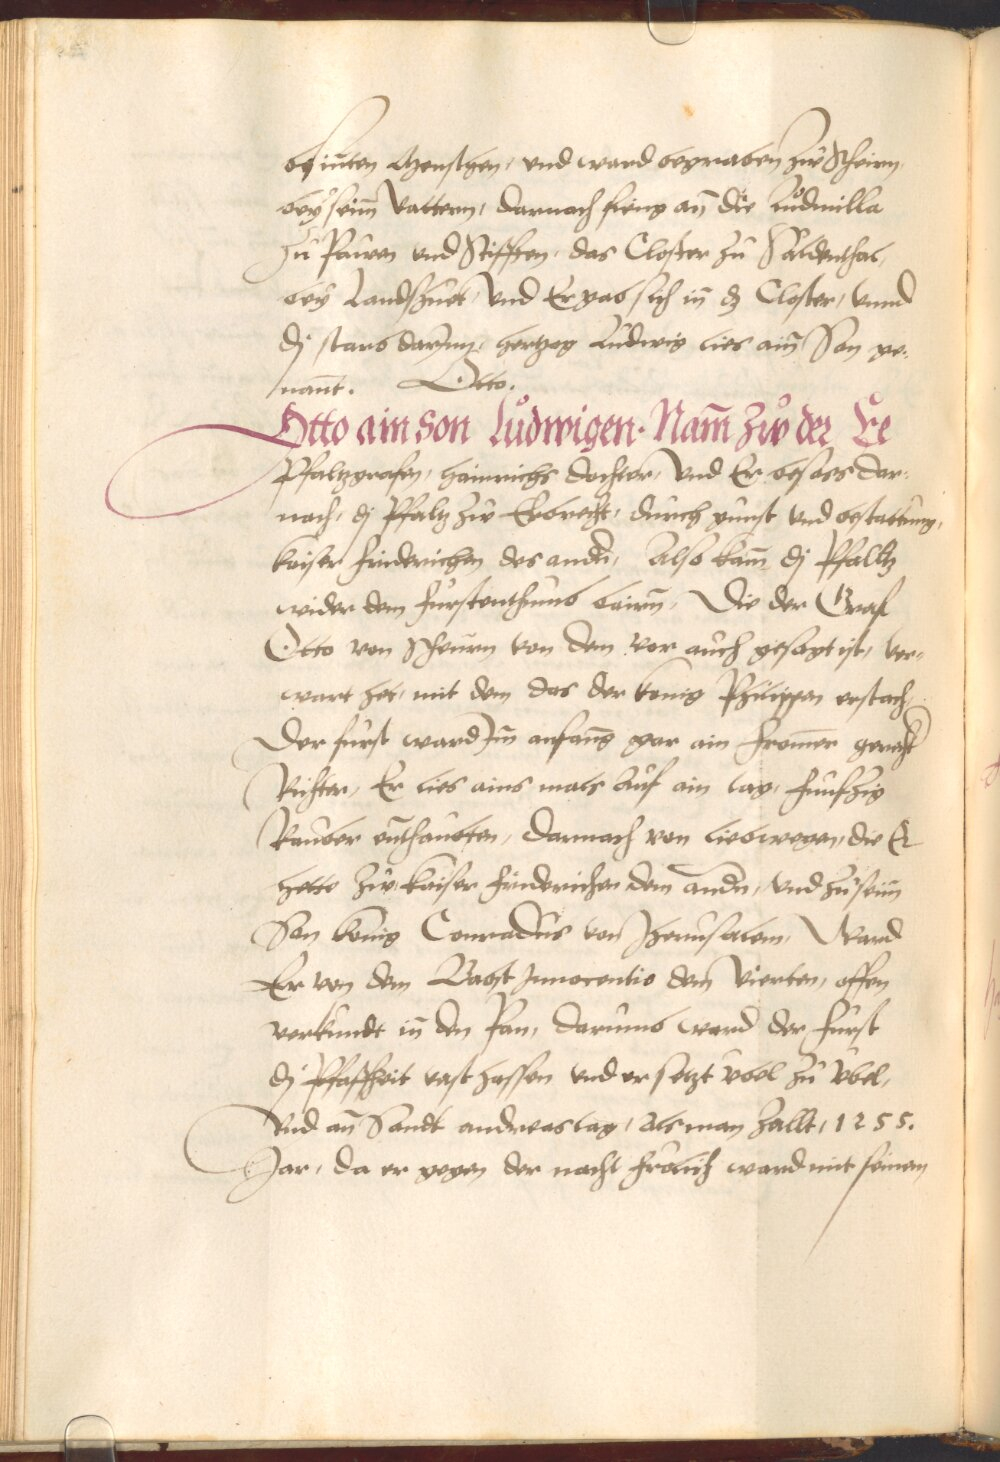 bekanten Menschen, vnd ward begraben zů Scheirn
bey seim̄ Vattern, darnach fieng an̄ die Ludmilla
zů Pawen vnd Stifften, das Closter zů Säldenthal,
bey Landshuet, Vnd Er gab sich in̄ dz Closter, vnnd
dj starb darynn, hertzog Ludwig lies ain̄ Son ge-
nant. Otto.
Otto ain Son Lůdwigen. Nam̄ zů der Ee
Pfaltzgrafen, hainrichs dochter, Vnd Er besass dar-
nach, dj Pfaltz zů Erbrecht, durch gunst vnd bestattung,
kaiser friderichen des andn̄, Also kam̄ dj Pfalltz
wider dem fürstenthumb bairn̄, Die der Graf
Otto von Scheurn von dem vor auch gesagt ist, ver-
wart het, mit dem das der konig Philippen erstach,
Der fürst ward Im̄ anfang gar ain from̄er gerecht
Richter, Er lies ains mals auf ain tag, funfzig
Rauber enthaubten, Darnach von liebwegen, die Er
hette zů kaiser friderichen dem andn̄, vnd zů seim̄
Son konig Conradus von Jherusalem, Ward
Er von dem Babst Innocentio dem Vierten, offen
verkundt in̄ den Pan, darumb ward der fürst
dj Pfaffheit vast hassen vnd er setzt übel zů übel,
Vnd an̄ Sandt andreas tag, Als man zallt, 1255.
Jar, da er gegen der nacht frölich ward mit seinem